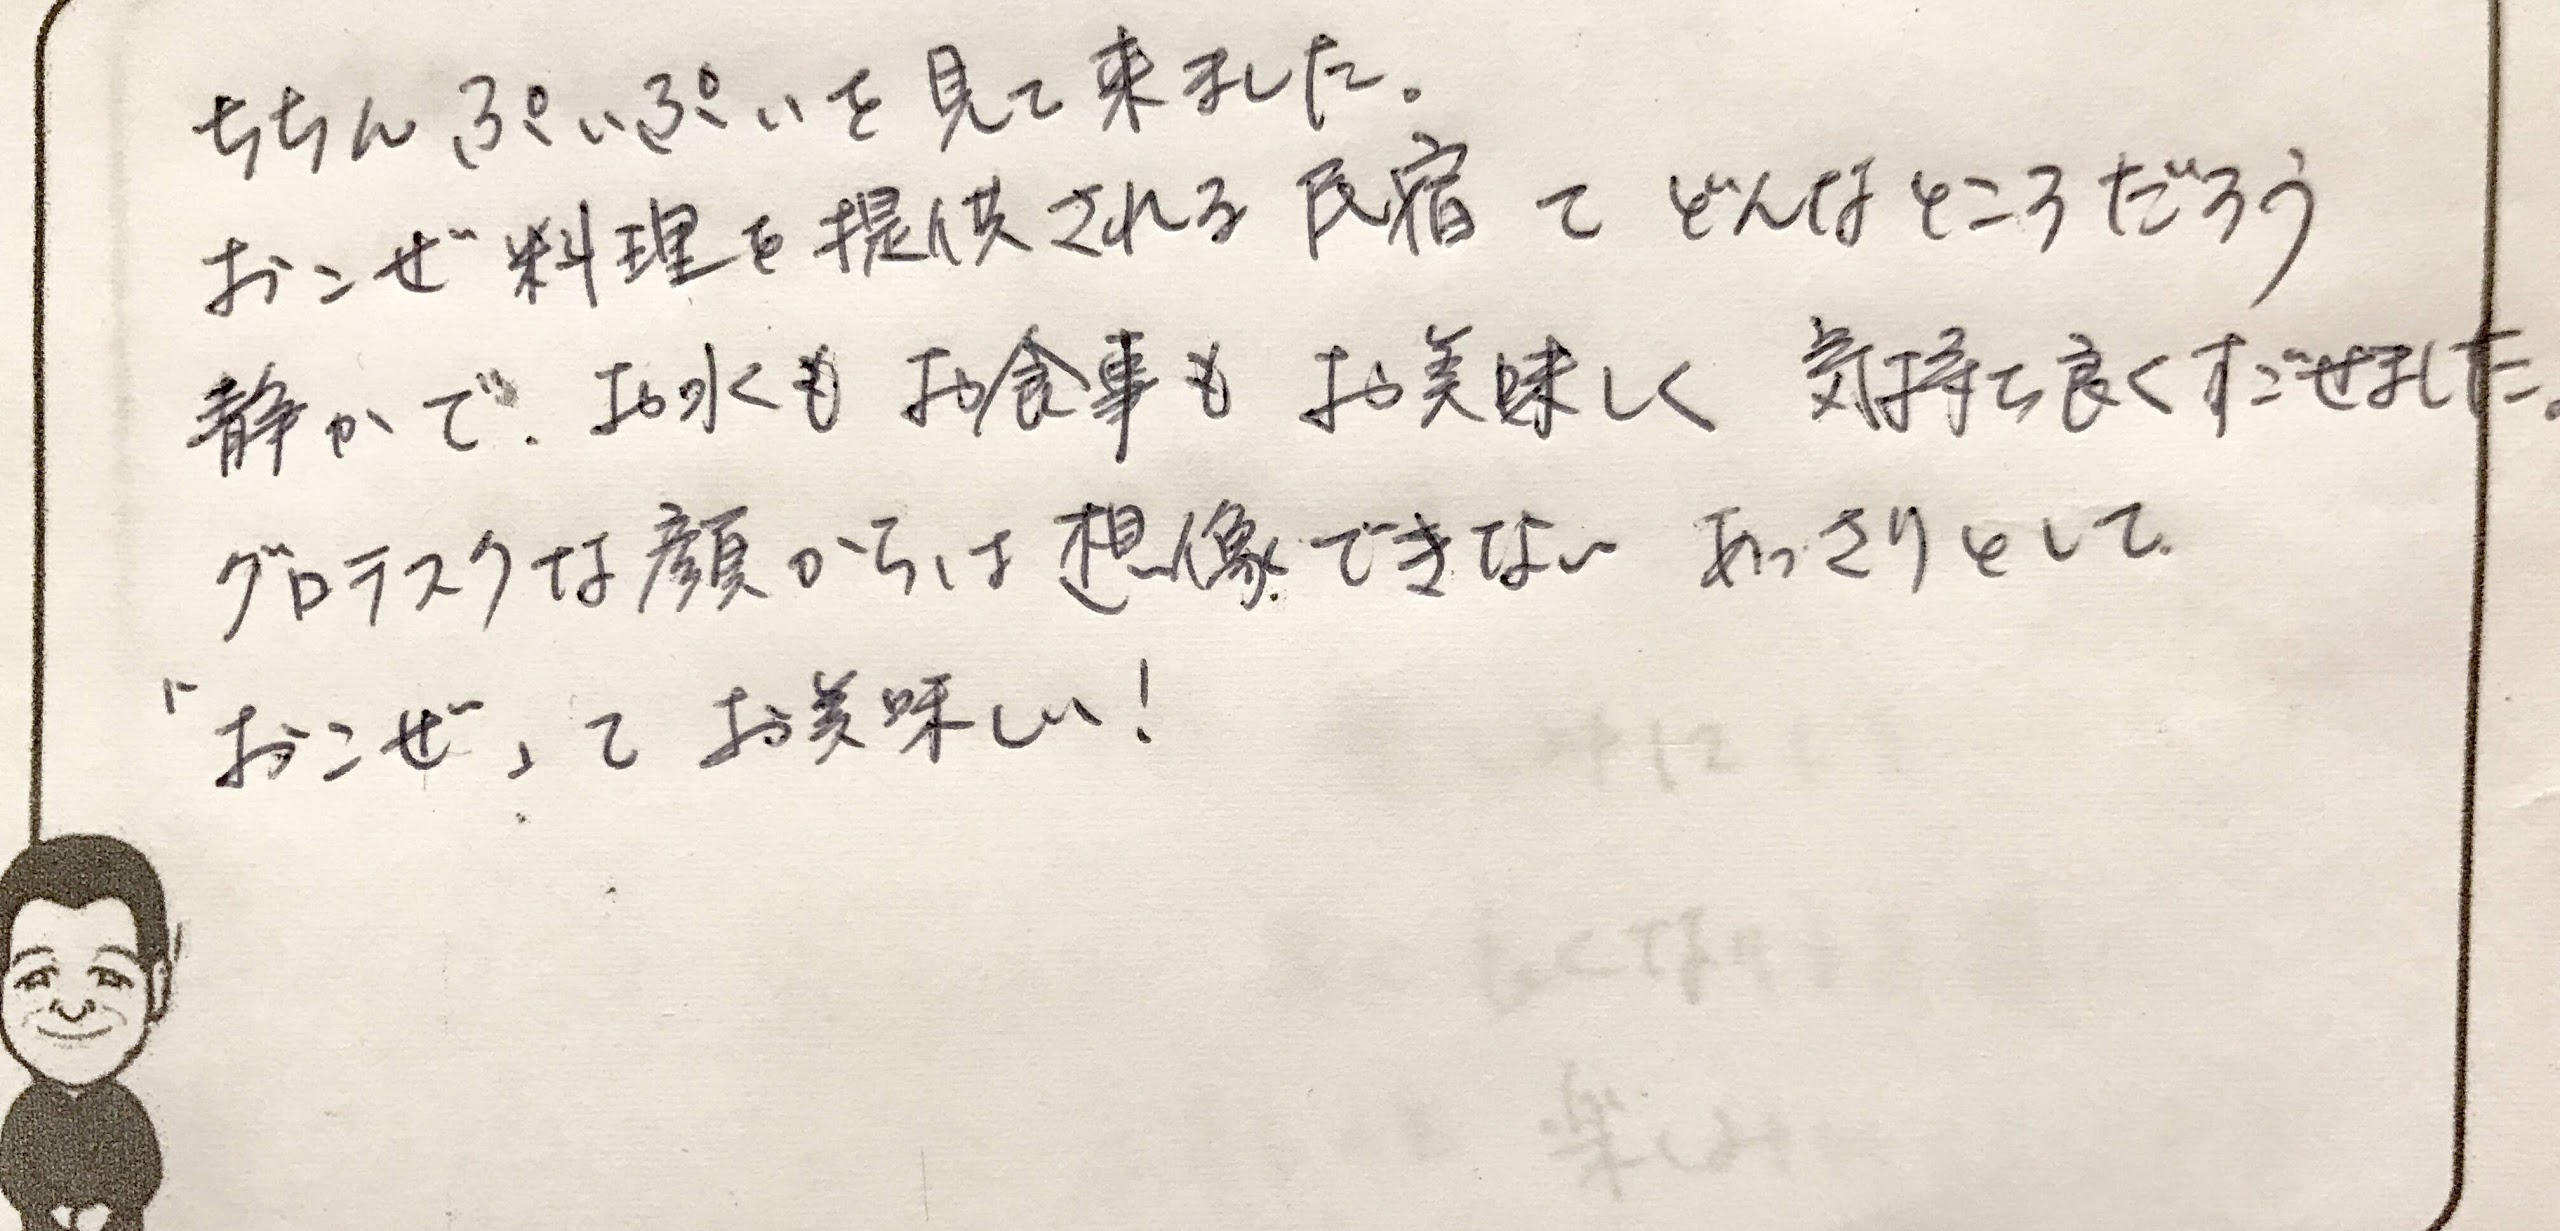 ちちんぷいぷいを見て来ました。
おこぜ料理を提供される民宿てどんなところだろう
静かで、お水くもお食事もお美味しく気持ち良くすごせました。
グロテスクな顔からは想像できないあっさりとして、
「おこぜ」てお美味しい!